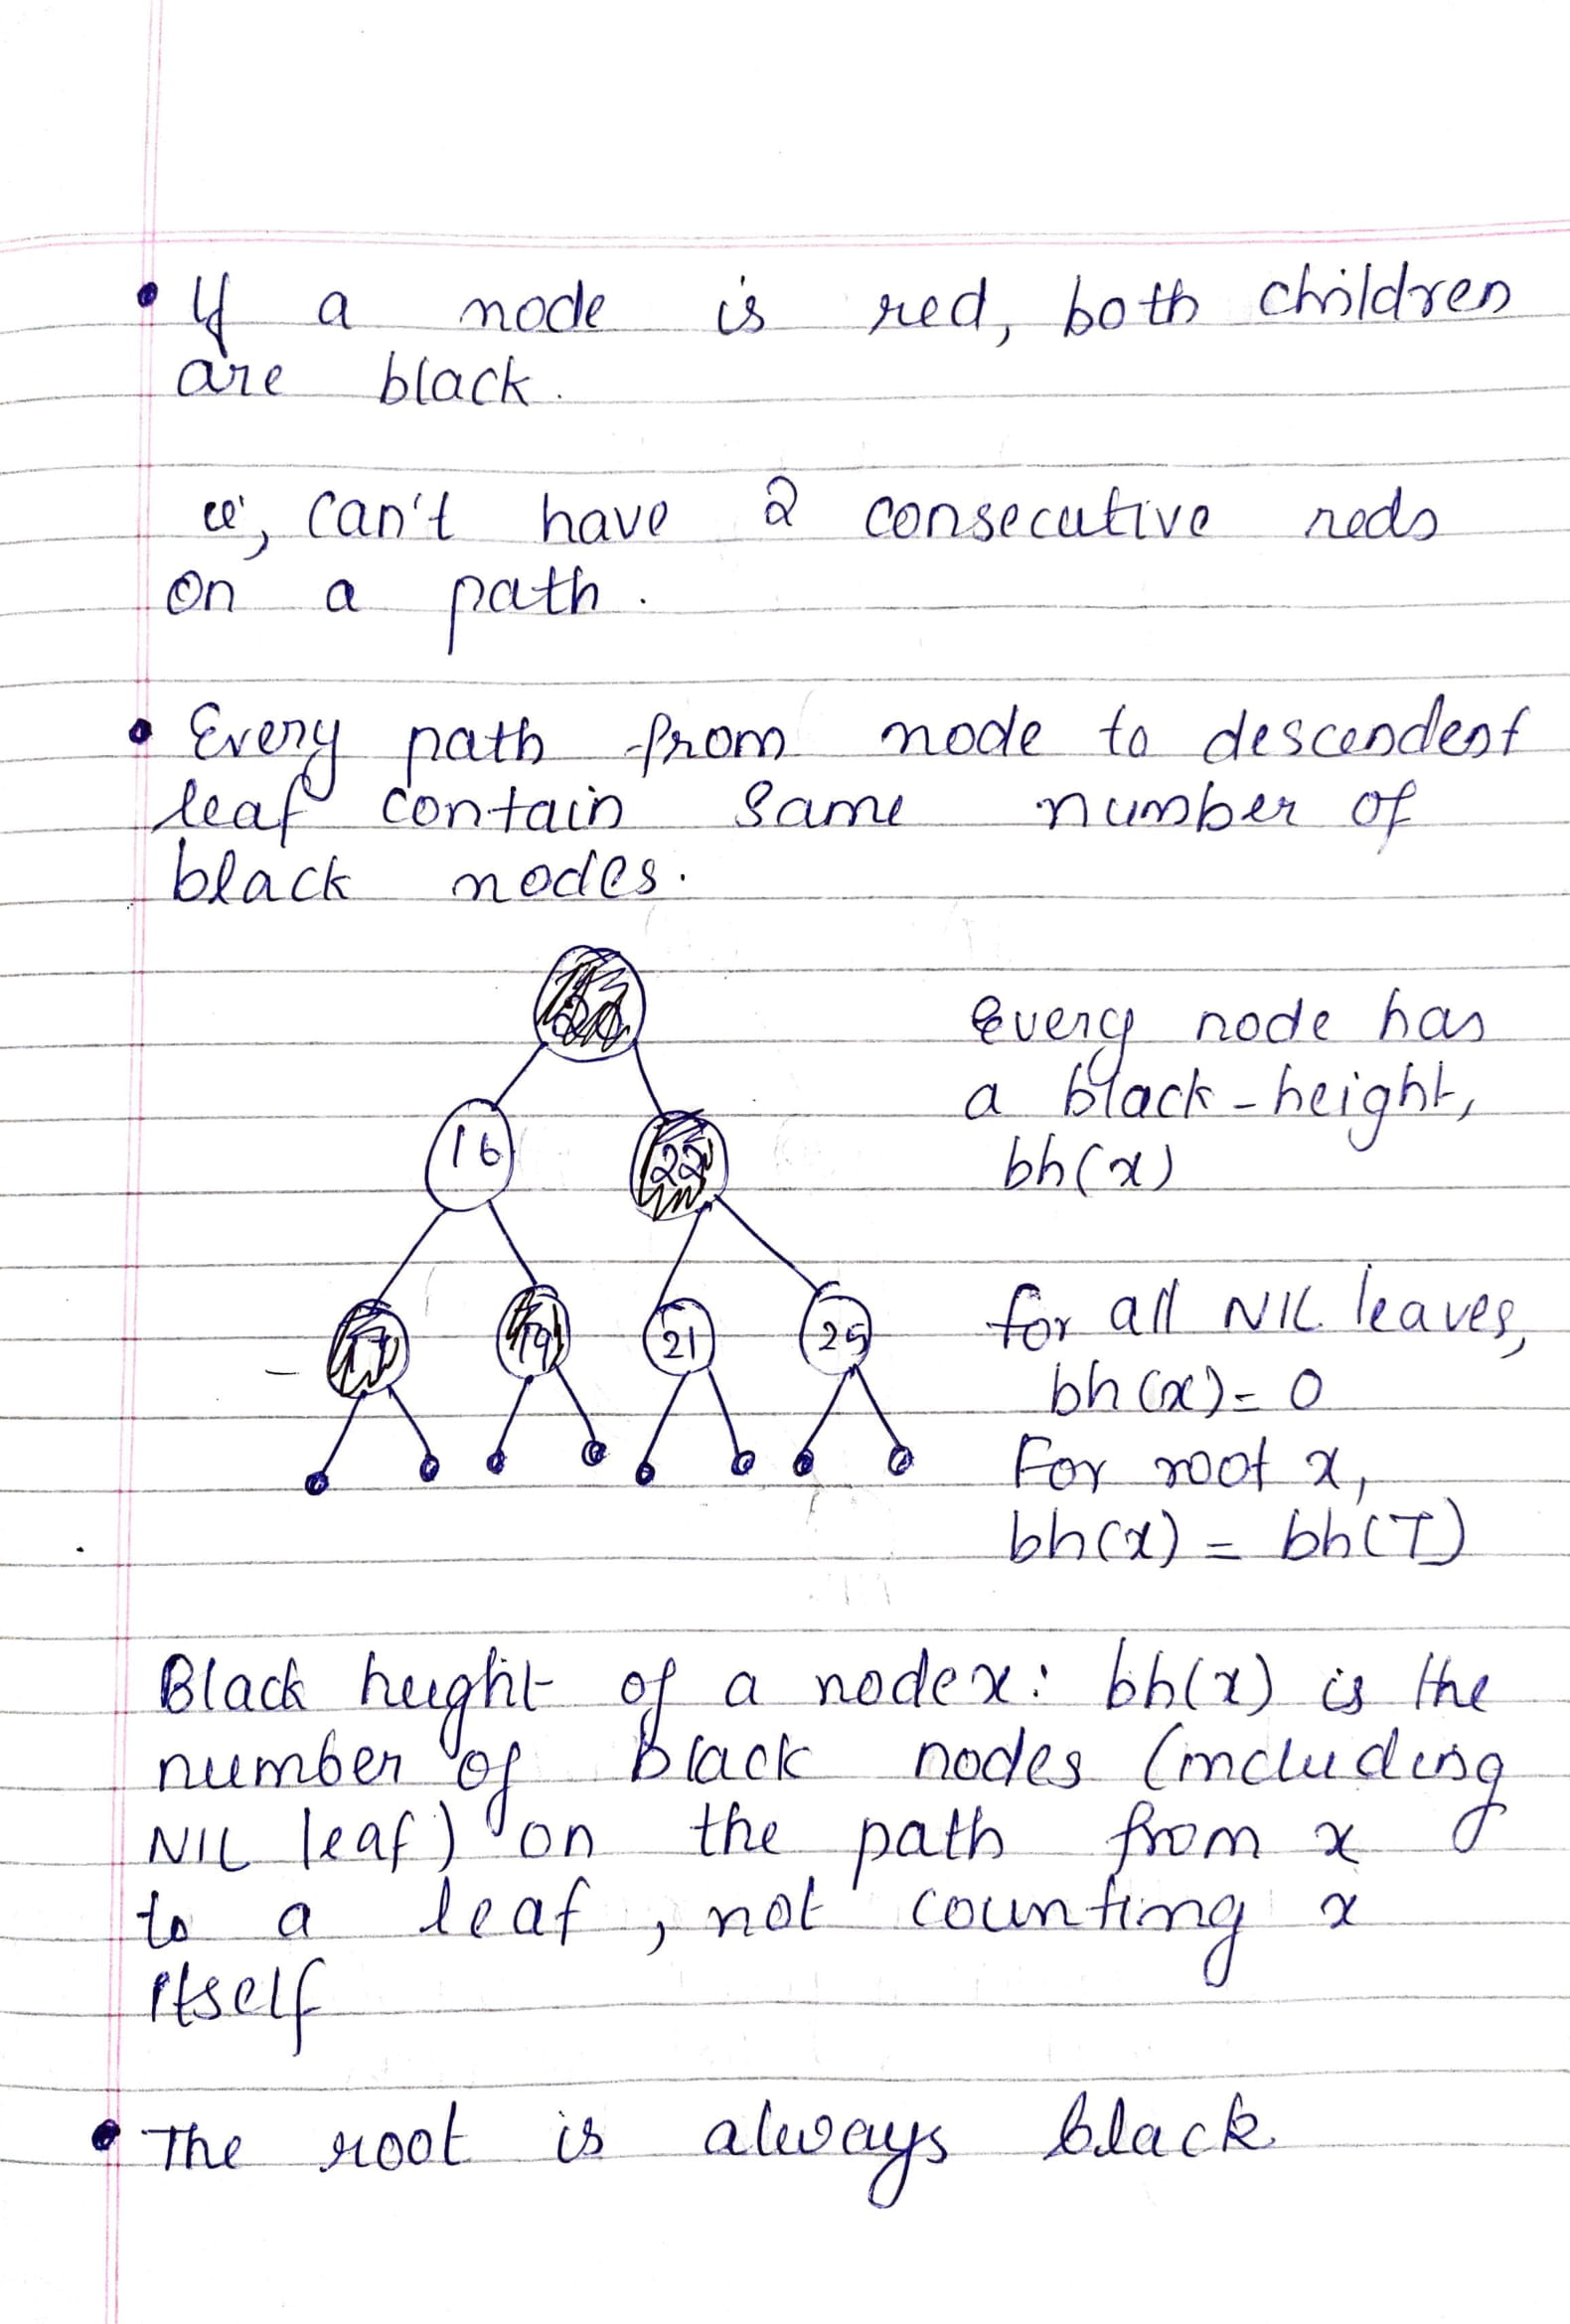 • If a node is red, both children
are black.
ie, can't have 2 consecutive reds
on a path.
• Every path from node to descendent
leaf contain same number of
black nodes.
Every node has
a black-height,
bh(x)
16
22
19
21
25
for all NIL leaves,
bh(x)=0
For root x,
bh(x) = bh(T)
Black height of a node x: bh(x) is the
number of black nodes (including
NIL leaf) on the path from x
to a leaf, not counting x
itself
• The root is always black.